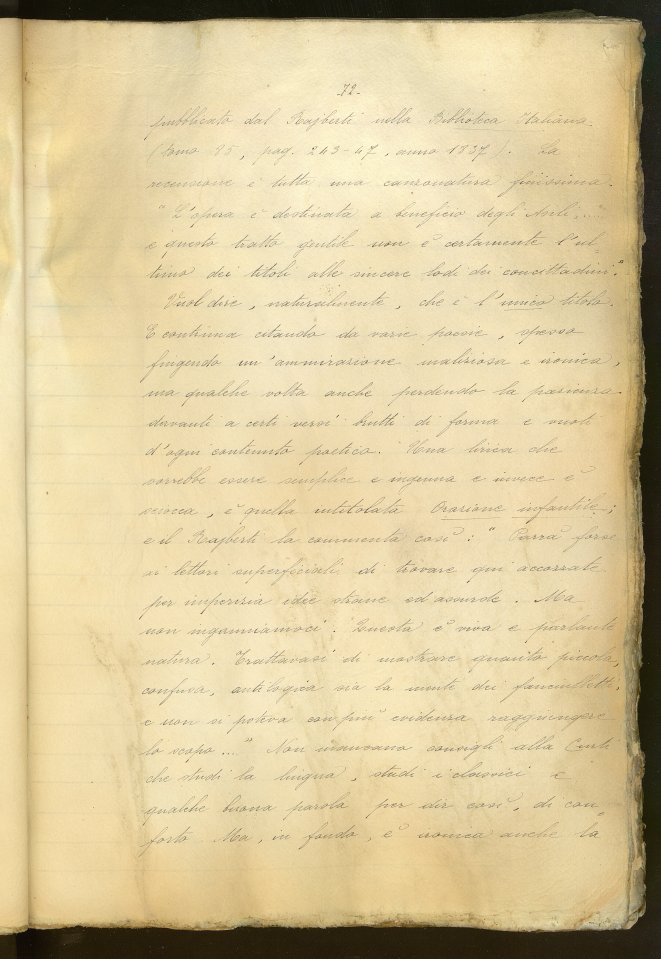 -72-
pubblicato dal Rajberti nella Biblioteca Italiana
(tomo 85, pag. 243-47, anno 1837). La
recensione è tutta una canzonatura finissima.
"L'opera è destinata a beneficio degli Asili,....
e questo tratto gentile non è certamente l'ul
timo dei titoli alle sincere lodi dei concittadini".
Vuol dire, naturalmente, che è l'unico titolo.
E continua citando da varie poesie, spesso
fingendo un'ammirazione maliziosa e ironica,
ma qualche volta anche perdendo la pazienza
davanti a certi versi brutti di forma e vuoti
d'ogni contenuto poetico. Una lirica che
vorrebbe essere semplice e ingenua e invece è
sciocca, è quella intitolata Orazione infantile;
e il Rajberti la commenta così: "Parrà forse
ai lettori superficiali di trovare qui accozzate
per imperizia idee strane ed assurde. Ma
non inganniamoci. Questa è viva e parlante
natura. Trattavasi di mostrare quanto piccola,
confusa, antilogica sia la mente dei fanciulletti,
e non si poteva con più evidenza raggiungere
lo scopo...." Non mancano consigli alla Curti
che studi la lingua, studi i classici e
qualche buona parola per dir così, di con
forto. Ma, in fondo, è ironica anche la